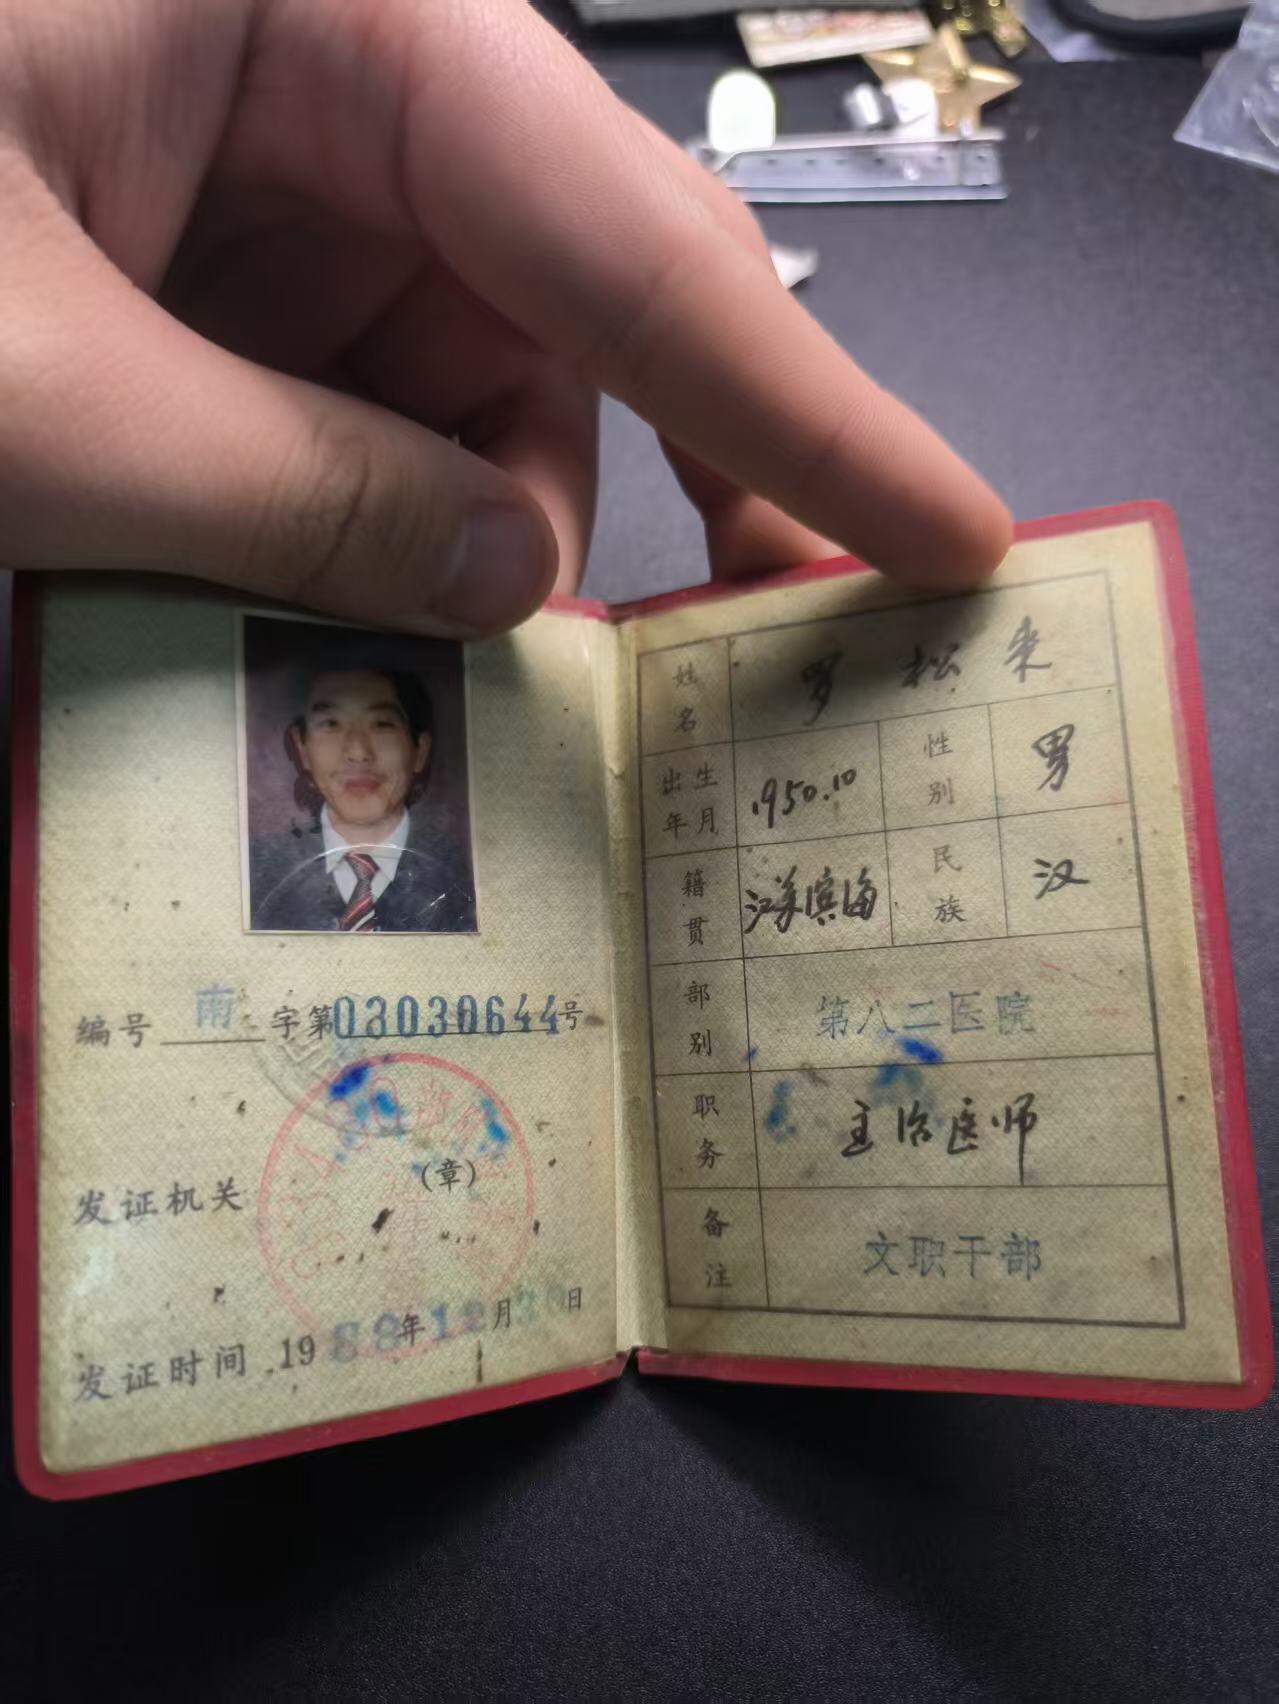 编号 南 字第03030644号
发证机关 (章)
发证时间 1988年12月 日
姓名 罗松来
出生年月 1950.10 性别 男
籍贯 江苏滨海 民族 汉
部别 第八二医院
职务 主治医师
备注 文职干部